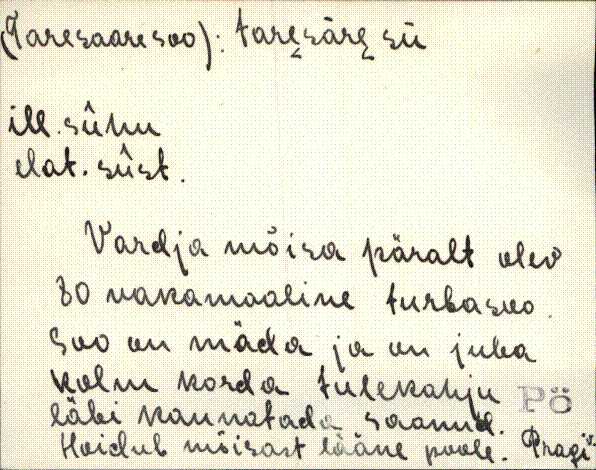 (Taresaaresoo): tarę̮sārę̮ sū
ill. sûhu
elat. sûst.
Vardja mõisa päralt olev
80 vakamaaline turbasoo.
Soo on mäda ja on juba
kolm korda tulekahju
läbi kannatada saanud. Pö
Hoidub mõisast lääne poole. Pragi